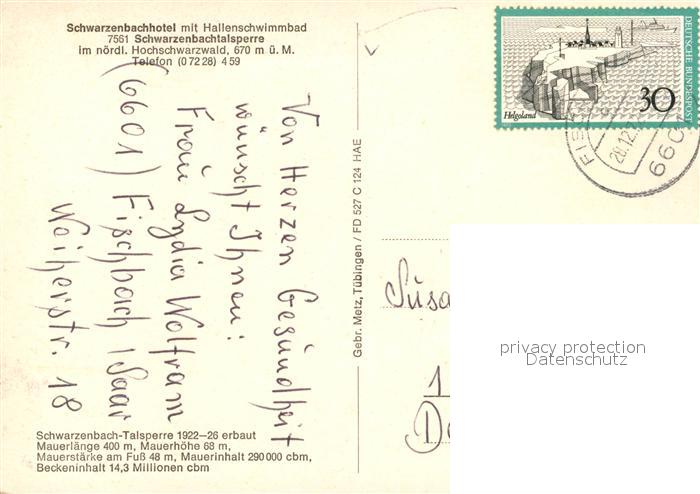 Schwarzenbachhotel mit Hallenschwimmbad
7561 Schwarzenbachtalsperre
im nördl. Hochschwarzwald, 670 m ü. M.
Telefon (0 72 28) 4 59
Von Herzen Gesundheit
wünscht Ihnen:
Frau Lydia Wolfram
(6601) Fischbach/Saar
Weiherstr. 18
Schwarzenbach-Talsperre 1922—26 erbaut
Mauerlänge 400 m, Mauerhöhe 68 m,
Mauerstärke am Fuß 48 m, Mauerinhalt 290 000 cbm,
Beckeninhalt 14,3 Millionen cbm
Gebr. Metz, Tübingen / FD 527 C 124 HAE
Helgoland
30
DEUTSCHE BUNDESPOST
28.12.
660
Susa
1
privacy protection
Datenschutz